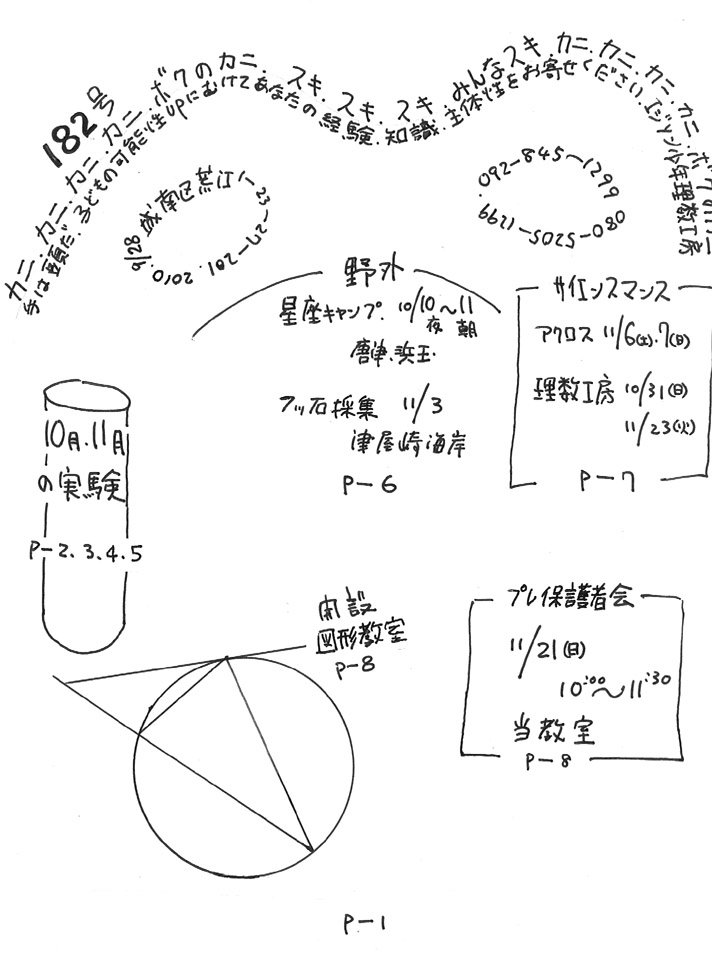 182号
カニ.カニ.カニ.カニ.ボクのカニ.スキ.スキ.スキ.みんなスキ.カニ.カニ.カニ.カニ.ボクのカニ
手は頭だ.子どもの可能性upにむけてあなたの経験.知識.主体性をお寄せください.エジソン少年理数工房
城南区荒江1-23-27-201.2010.9/28
092-845-1299
080-5025-1299
野外
星座キャンプ.10/10~11
夜 朝
唐津.浜玉.
フッ石採集 11/3
津屋崎海岸
P-6
サイエンスマンス
アクロス 11/6(土).7(日)
理数工房 10/31(日)
11/23(火)
P-7
10月.11月
の実験
P-2.3.4.5
開設
図形教室
P-8
プレ保護者会
11/21(日)
10:00~11:30
当教室
P-8
P-1